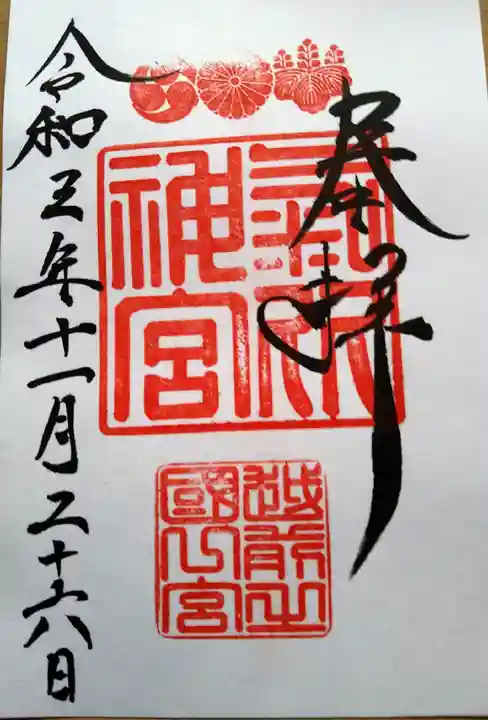 奉拝
氣比
神宮
越前之
國一宮
令和三年十一月二十六日